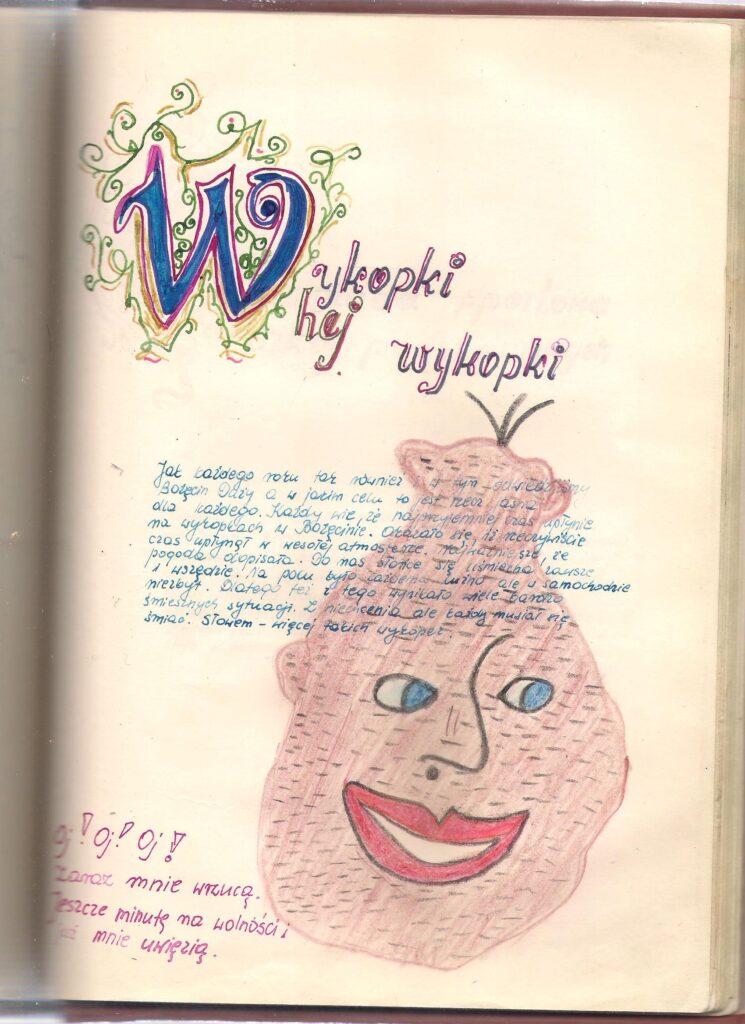 Wykopki
hej
wykopki
Jak każdego roku tak również i w tym odwiedziliśmy
Bożęcin Duży a w jakim celu to jest rzecz jasna
dla każdego. Każdy wie, że najprzyjemniej czas upłynie
na wykopkach w Bożęcinie. Okazało się, iż rzeczywiście
czas upłynął w wesołej atmosferze. Najważniejsze, że
pogoda dopisała. Do nas słońce się uśmiecha zawsze
i wszędzie. Na polu było luźno ale w samochodzie
niezbyt. Dlatego też z tego wynikało wiele bardzo
śmiesznych sytuacji. Z ale każdy musiał się
śmiać. Słowem - więcej takich wykopek.
Oj! Oj! Oj!
zaraz mnie wrzucą.
Jeszcze minutę na wolności i
już mnie uwięzią.